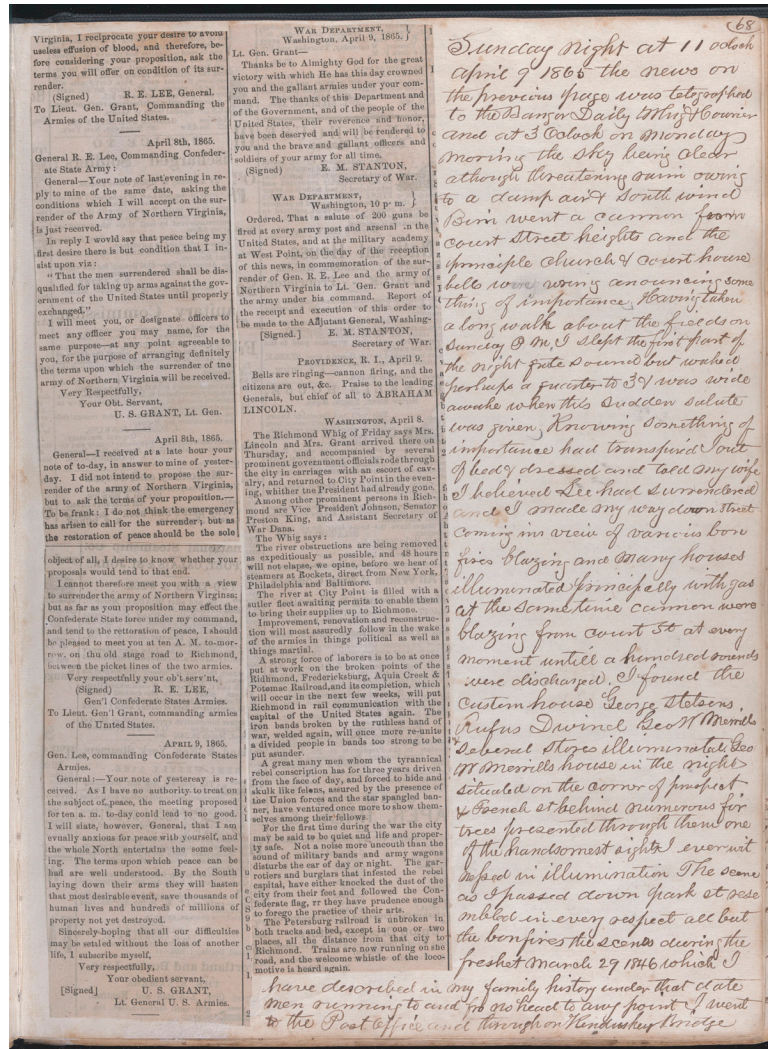 68
Virginia, I reciprocate your desire to avoid
useless effusion of blood, and therefore, be-
fore considering your proposition, ask the
terms you will offer on condition of its sur-
render.
(Signed) R. E. LEE, General.
To Lieut. Gen. Grant, Commanding the
Armies of the United States.
April 8th, 1865.
General R. E. Lee, Commanding Confeder-
ate State Army:
General—Your note of last evening in re-
ply to mine of the same date, asking the
conditions which I will accept on the sur-
render of the Army of Northern Virginia,
is just received.
In reply I would say that peace being my
first desire there is but condition that I in-
sist upon viz:
"That the men surrendered shall be dis-
qualified for taking up arms against the gov-
ernment of the United States until properly
exchanged."
I will meet you, or designate officers to
meet any officer you may name, for the
same purpose—at any point agreeable to
you, for the purpose of arranging definitely
the terms upon which the surrender of tne
army of Northern Virginia will be received.
Very Respectfully,
Your Obt. Servant,
U. S. GRANT, Lt. Gen.
April 8th, 1865.
General—I received at a late hour your
note of to-day, in answer to mine of yester-
day. I did not intend to propose the sur-
render of the army of Northern Virginia,
but to ask the terms of your proposition.—
To be frank: I do not think the emergency
has arisen to call for the surrender; but as
the restoration of peace should be the sole
object of all, I desire to know whether your
proposals would tend to that end.
I cannot therefore meet you with a view
to surrender the army of Northern Virginia;
but as far as your proposition may effect the
Confederate State force under my command,
and tend to the restoration of peace, I should
be pleased to meet you at ten A. M. to-mor-
row, on thu old stage road to Richmond,
between the picket lines of the two armies.
Very respectfully your ob't serv'nt,
(Signed) R. E. LEE,
Gen'l Confederate States Armies.
To Lieut. Gen'l Grant, commanding armies
of the United States.
APRIL 9, 1865.
Gen. Lee, commanding Confederate States
Armies.
General:—Your note of yestereay is re-
ceived. As I have no authority to treat on
the subject of peace, the meeting proposed
for ten a. m. to-day could lead to no good.
I will siate, however, General, that I am
evually anxious for peace with yourself, and
the whole North entertains the some feel-
ing. The terms upon which peace can be
bad are well understood. By the South
laying down their arms they will hasten
that most desirable event, save thousands of
human lives and hundreds of millions of
property not yet destroyed.
Sincerely hoping that all our difficulties
may be settled without the loss of another
life, I subscribe myself,
Very respectfully,
Your obedient servant,
[Signed] U. S. GRANT,
Lt. General U. S. Armies.
WAR DEPARTMENT,
Washington, April 9, 1865.
Lt. Gen. Grant—
Thanks be to Almighty God for the great
victory with which He has this day crowned
you and the gallant armies under your com-
mand. The thanks of this Department and
of the Government, and of the people of the
United States, their reverence and honor,
have been deserved and will be rendered to
you and the brave and gallant officers and
soldiers of your army for all time.
(Signed) E. M. STANTON,
Secretary of War.
WAR DEPARTMENT,
Washington, 10 p· m.
Ordered, That a salute of 200 guns be
fired at every army post and arsenal in the
United States, and at the military academy
at West Point, on the day of the reception
of this news, in commemoration of the sur-
render of Gen. R. E. Lee and the army of
Northern Virginia to Lt. Gen. Grant and
the army under his command. Report of
the receipt and execution of this order to
be made to the Adjutant General, Washing-
[Signed.] E. M. STANTON,
Secretary of War.
PROVIDENCE, R. I., April 9.
Bells are ringing—cannon firing, and the
citizens are out, &c. Praise to the leading
Generals, but chief of all to ABRAHAM
LINCOLN.
WASHINGTON, April 8.
The Richmond Whig of Friday says Mrs.
Lincoln and Mrs. Grant arrived there on
Thursday, and accompanied by several
prominent government officials rode through
the city in carriages with an escort of cav-
alry, and returned to City Point in the even-
ing, whither the President had already gone.
Among other prominent persons in Rich-
mond are Vice President Johnson, Senator
Preston King, and Assistant Secretary of
War Dana.
The Whig says:
The river obstructions are being removed
as expeditiously as possible, and 48 hours
will not elapse, we opine, before we hear of
steamers at Rockets, direct from New York,
Philadelphia and Baltimore.
The river at City Point is filled with a
sutler fleet awaiting permits to enable them
to bring their supplies up to Richmone.
Improvement, renovation and reconstruc-
tion will most assuredly follow in the wake
of the armies in things political as well as
things martial.
A strong force of laborers is to be at once
put at work on the broken points of the
Ridhmond, Fredericksburg, Aquia Creek &
Potomac Railroad, and its completion, which
will occur in the next few weeks, will put
Richmond in rail communication with the
capital of the United States again. The
iron bands broken by the ruthless hand of
war, welded again, will once more re-unite
a divided people in bands too strong to be
put asunder.
A great many men whom the tyrannical
rebel conscription has for three years driven
from the face of day, and forced to hide and
skulk like felons, assured by the presence of
tne Union forces and the star spangled ban-
ner, have ventured once more to show them-
selves among their fellows.
For the first time during the war the city
may be said to be quiet and life and proper-
ty safe. Not a noise more uncouth than the
sound of military bands and army wagons
disturbs the ear of day or night. The gar-
rotiers and burglars that infested the rebel
capital, have either knocked the dust of the
city from their feet and followed the Con-
federate flag, rr they have prudence enough
to forego the practice of their arts.
The Petersburg railroad is unbroken in
both tracks and bed, except in one or two
places, all the distance from that city to
Richmond. Trains are now running on the
road, and the welcome whistle of the loco-
motive is heard again.
Sunday night at 11 oclock
april 9 1865 the news on
the previous page was telegraphed
to the Bangor Daily Whig & Courier
and at 3 Oclock on Monday
morning the sky being clear
although threatening rain owing
to a damp air & South wind
Bim went a cannon from
court Street heights and the
principle church & court house
bells were wrung anouncing some
thing of importance, Having taken
a long walk about the fields on
Sunday P M, I slept the first part of
the night quite sound but waked
perhaps a quarter to 3 & was wide
awake when this sudden salute
was given, Knowing something of
importance had transpired I out
of bed & dressed and told my wife
I believed Lee had Surrendered
and I made my way down Street
coming in view of various bon
fires blazing and many houses
illuminated principally with gas
at the same time cannon were
blazing from court St at every
moment untill a hundred rounds
were discharged. I found the
custom house George Stetsens,
Rufus Dwinel Geo W Merrills
& Several Stores illuminated Geo
W Merrills house in the night
situated on the corner of prospect
& French st behind numerous fir
trees presented through them one
of the handsomest sights I ever wit
nessed in illumination The scene
as I passed down park st rese
mbled in every respect all but
the bonfires the scene during the
freshet March 29 1846 which I
have described in my family history under that date
men running to and fro no head to any point I went
to the Post Office and through on Kenduskeag Bridge